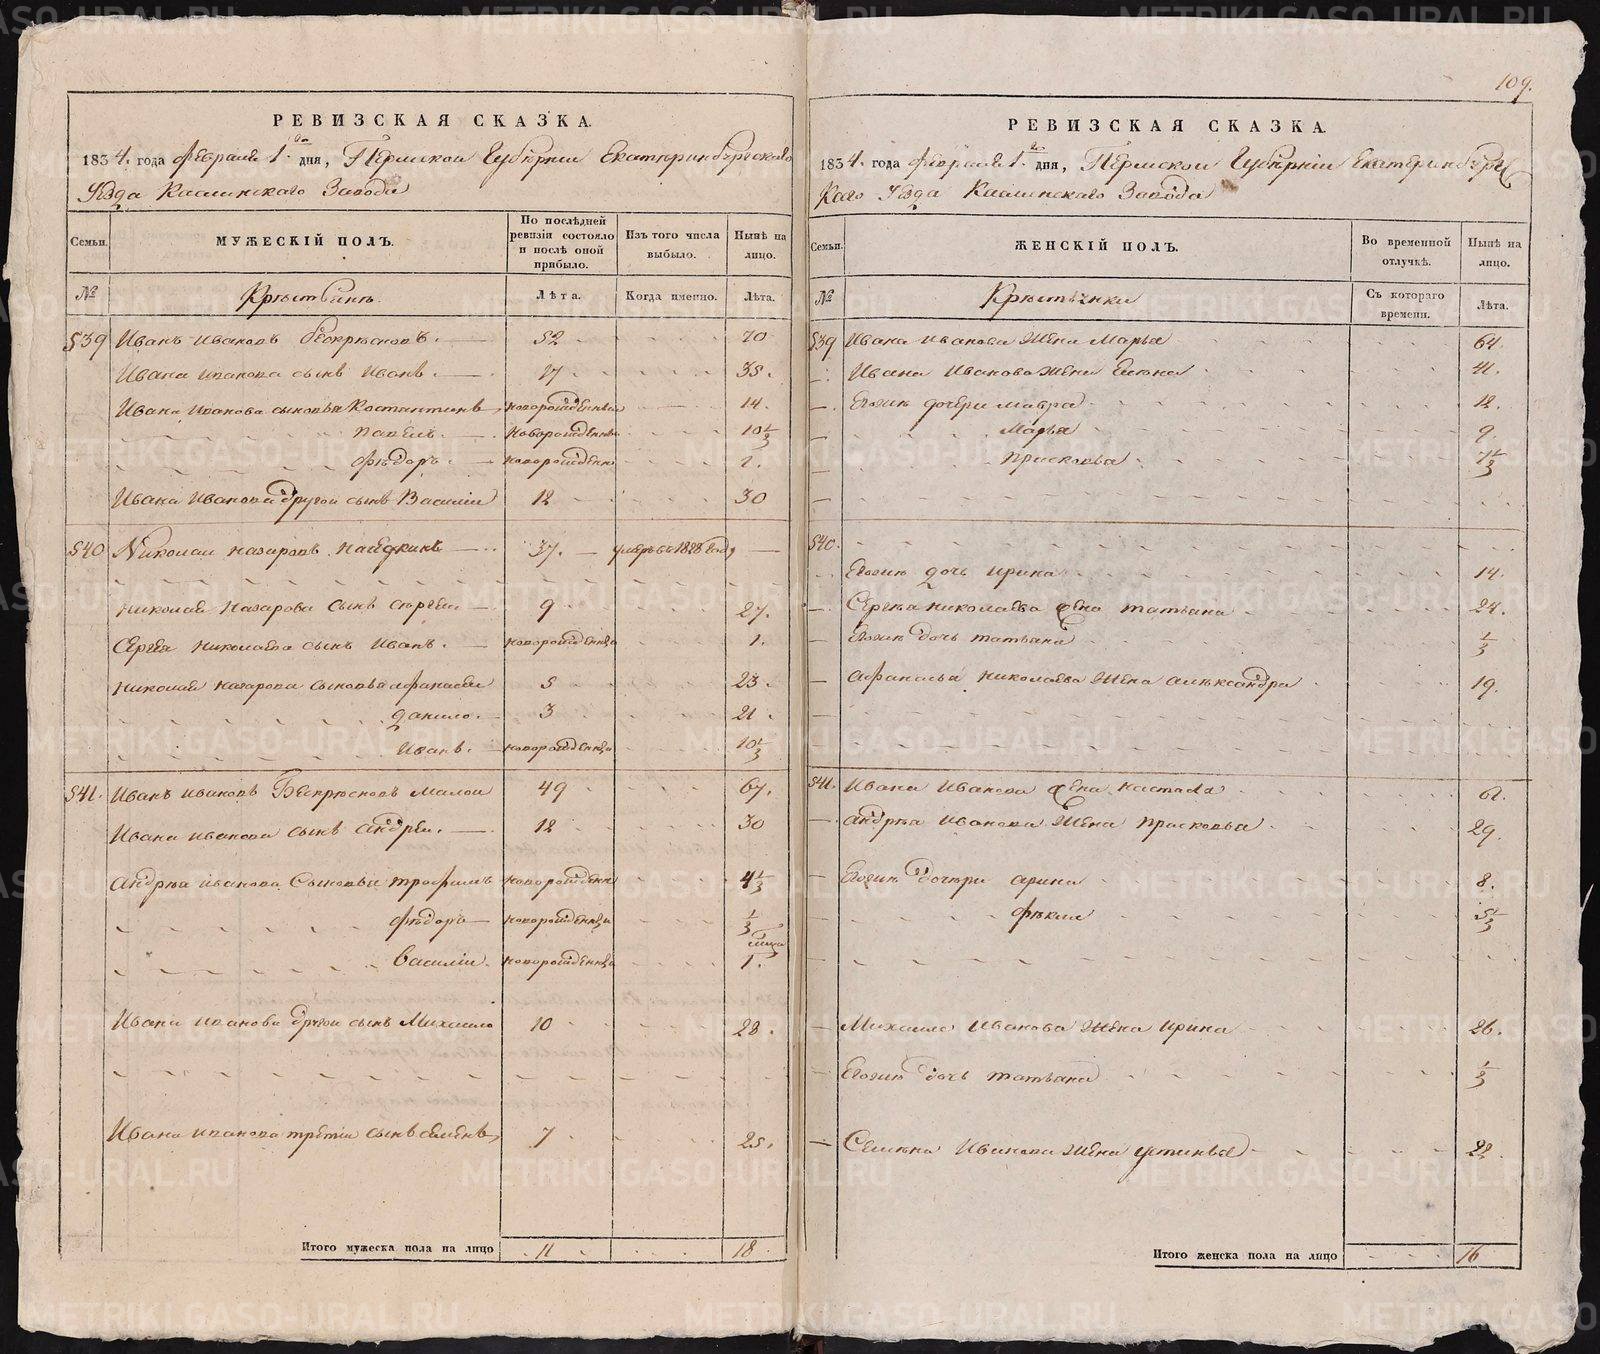 РЕВИЗСКАЯ СКАЗКА.
1834. года февраля 1. го дня, Пермской Губернии Екатеринбургскаго
Уезда Каслинскаго Завода
Семьи. МУЖЕСКІЙ ПОЛЪ. По послѣдней ревизіи состояло и послѣ оной прибыло. Изъ того числа выбыло. Нынѣ на лицо.
№ Крестьянъ. Лѣта. Когда именно. Лѣта.
539 Иванъ Ивановъ 52 70
Ивана Иванова сынъ Иванъ. 17 35.
Ивана Иванова сыновья Костантинъ новорожденны 14.
Павелъ. новорожденны 10 1/2
Фѣдоръ. новорожденн
Ивана Иванова другой сынъ Василіи 12 30
540 Николаи Назаровъ 37. умеръ въ 1828 году
Николая Назарова сынъ Сергеи 9 27.
Сергея Николаева сынъ Иванъ. новорожденны 1.
Николая Назарова сыновья Афанасеи 5 23.
Данило. 3 21.
Иванъ. новорожденны 10 1/3
541. Иванъ Ивановъ Безкрѣсновъ Малои 49 67.
Ивана Иванова сынъ Андреи. 12 30
Андрѣя Иванова Сыновья Трофимъ новорожденн 4 1/3
Фѣдоръ новорожденны 1/3
Василіи. новорожденны 1.
Ивана Иванова другои сынъ Михаило 10 28.
Ивана Иванова третіи сынъ Семенъ, 7 25.
Итого мужеска пола на лицо 11 18
109.
РЕВИЗСКАЯ СКАЗКА.
1834. года февраля 1. го дня, Пермской Губерніи Екатеринбургс
каго Уезда Каслинскаго Завода
Семьи. ЖЕНСКІЙ ПОЛЪ. Во временной отлучкѣ. Нынѣ на лицо.
№ Крестьянки Съ котораго времени. Лѣта.
539 Ивана Иванова Жена Марья 64.
Ивана Иванова жена Елена 41.
Егожъ дочери Мавра 12.
Марья 9.
Прасковья 7 1/3
540.
Егожъ дочь Ирина 14.
Сергея Николаева жена Татьяна 24.
Егожъ дочь Татьяна 1/3
Афанасья Николаева Жена Александра 19.
541. Ивана Иванова жена Настасья 61.
Андрѣя Иванова Жена Прасковья 29.
Егожъ дочери Арина 8.
Фекла 5 1/3
Михаила Иванова Жена Ирина 26.
Егожъ дочь Татьяна 1/3
Семена Иванова Жена Устинья 22.
Итого женска пола на лицо 16
METRIKI.GASO-URAL.RU